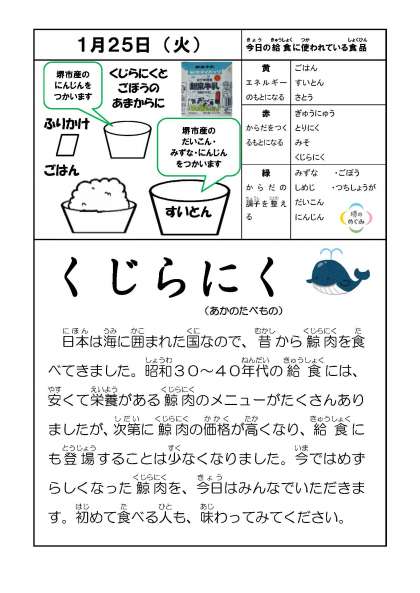 1月25日（火）
堺市産の
にんじんを
つかいます
くじらにくと
ごぼうの
あまからに
ふりかけ
ごはん
堺市産の
だいこん・
みずな・にんじん
をつかいます
すいとん
今日の給食に使われている食品
黄
エネルギー
のもとになる
ごはん
すいとん
さとう
赤
からだをつく
るもとになる
ぎゅうにゅう
とりにく
みそ
くじらにく
緑
からだの
調子を整え
る
みずな ・ごぼう
しめじ ・つちしょうが
だいこん
にんじん
堺の
めぐみ
くじらにく
（あかのたべもの）
日本は海に囲まれた国なので、昔から鯨肉を食
べてきました。昭和３０～４０年代の給食には、
安くて栄養がある鯨肉のメニューがたくさんあり
ましたが、次第に鯨肉の価格が高くなり、給食に
も登場することは少なくなりました。今ではめず
らしくなった鯨肉を、今日はみんなでいただきま
す。初めて食べる人も、味わってみてください。